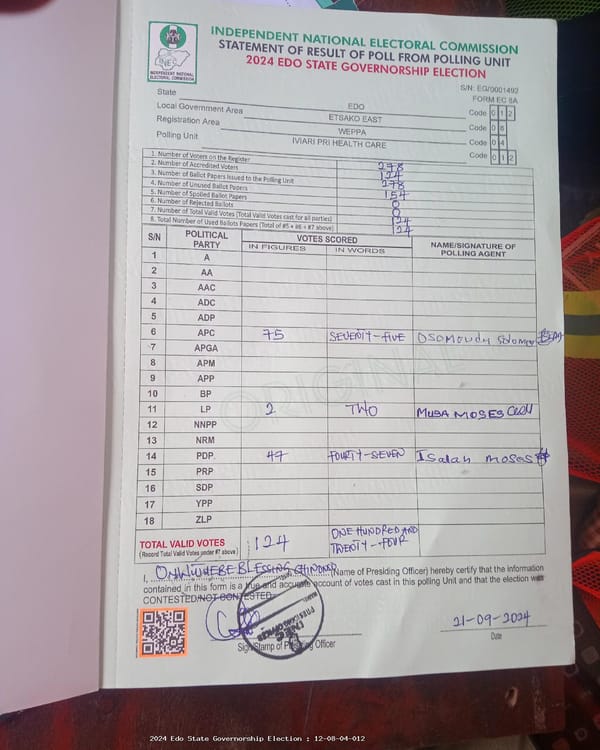 INDEPENDENT NATIONAL ELECTORAL COMMISSION
STATEMENT OF RESULT OF POLL FROM POLLING UNIT
2024 EDO STATE GOVERNORSHIP ELECTION
INEC
INDEPENDENT NATIONAL
ELECTORAL COMMISSION
S/N: EG/0001492
FORM EC 8A
State EDO Code 0 1 2
Local Government Area ETSAKO EAST Code 0 8
Registration Area WEPPA Code 0 4
Polling Unit IVIARI PRI HEALTH CARE Code 0 1 2
1. Number of Voters on the Register 278
2. Number of Accredited Voters 124
3. Number of Ballot Papers Issued to the Polling Unit 278
4. Number of Unused Ballot Papers 154
5. Number of Spoiled Ballot Papers 0
6. Number of Rejected Ballots 0
7. Number of Total Valid Votes (Total Valid Votes cast for all parties) 124
8. Total Number of Used Ballots Papers (Total of #5 + #6 + #7 above) 124
S/N POLITICAL PARTY VOTES SCORED NAME/SIGNATURE OF POLLING AGENT
IN FIGURES IN WORDS
1 A
2 AA
3 AAC
4 ADC
5 ADP
6 APC 75 SEVENTY-FIVE Solomon
7 APGA
8 APM
9 APP
10 BP
11 LP 2 TWO MUSA MOSES
12 NNPP
13 NRM
14 PDP 47 FOURTY-SEVEN Isaiah moses
15 PRP
16 SDP
17 YPP
18 ZLP
ORIGINAL
TOTAL VALID VOTES 124 ONE HUNDRED AND
(Record Total Valid Votes under #7 above) TWENTY-FOUR
I, BLESSING (Name of Presiding Officer) hereby certify that the information
contained in this form is a true and accurate account of votes cast in this polling Unit and that the election was
CONTESTED/NOT CONTESTED
INEC
PRESIDING OFFICER
Sign/Stamp of Presiding Officer
21-09-2024
Date
2024 Edo State Governorship Election : 12-08-04-012